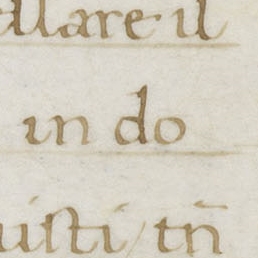 ellare il
in do
uisti / tn̄